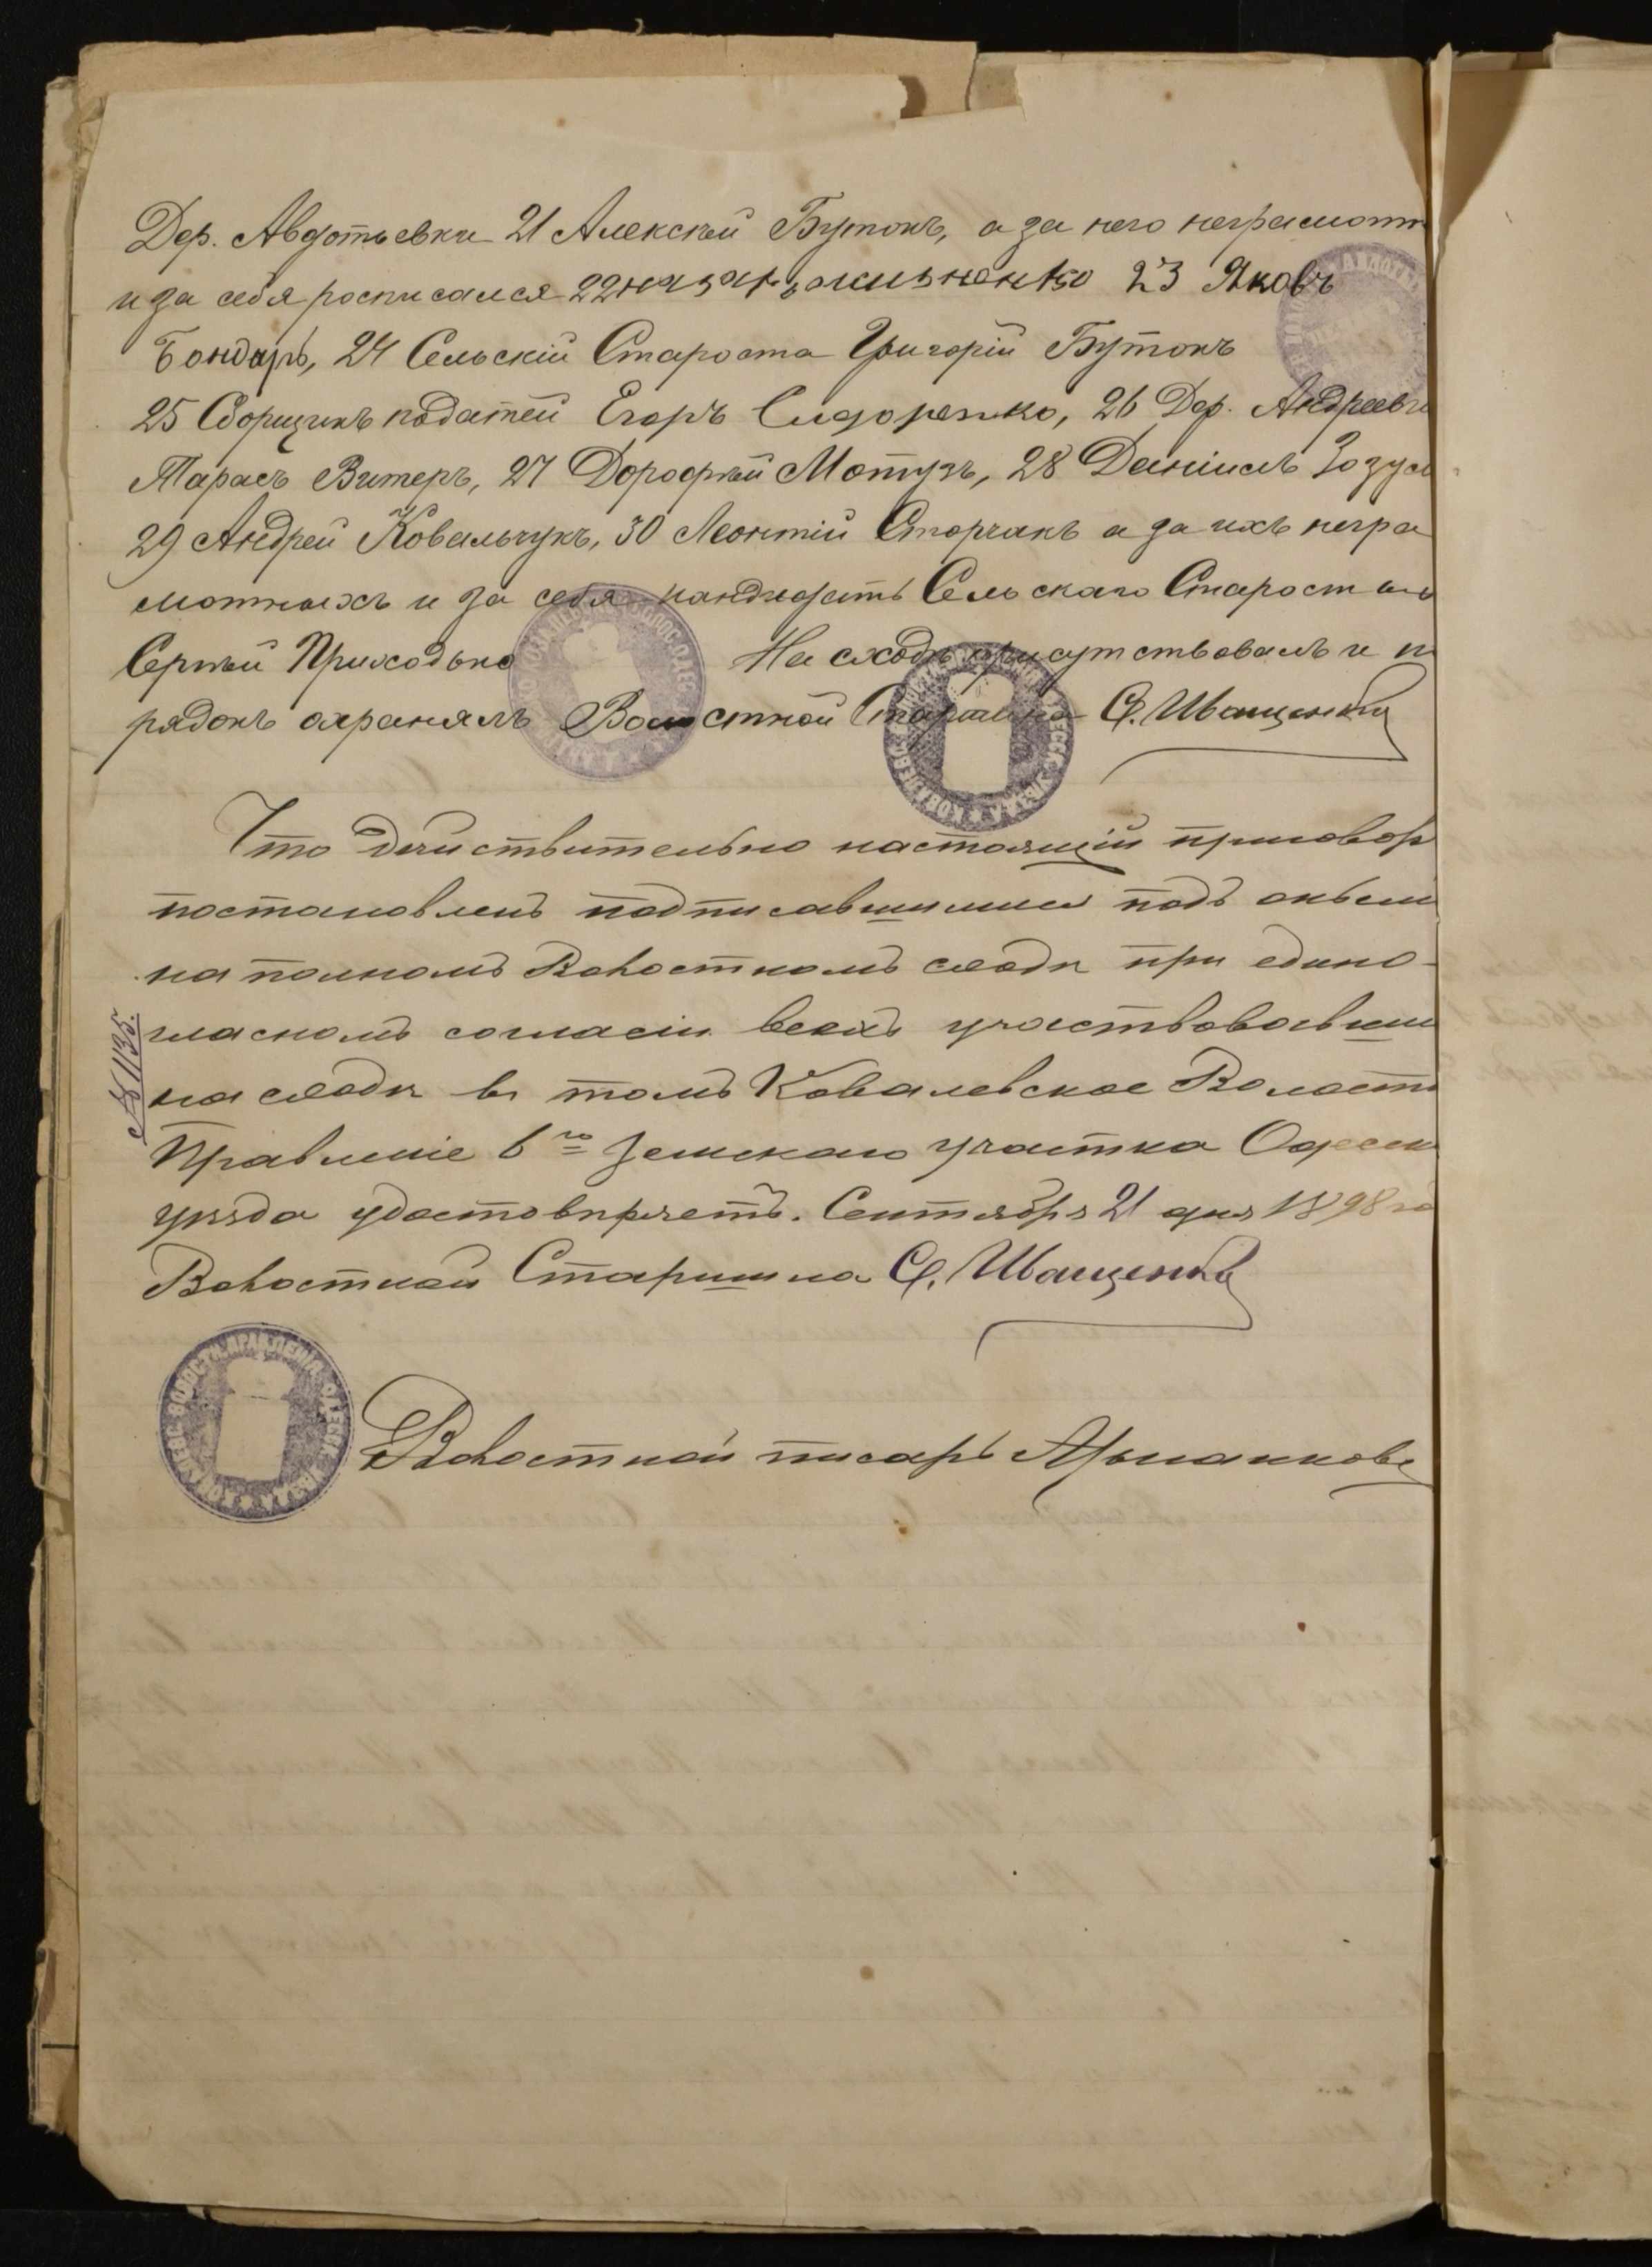 Дер. Авдотьевки 21 Алексѣй Бутокъ, а за него неграмотн
и за себя росписался 22 Назаръ 23 Яковъ
Бондарь, 24 Сельскій Староста Григорій Бутокъ
25 Сборщикъ податей Егоръ Сидоренко, 26 Дер. Андреевк
Тарасъ Витеръ, 27 Дорофѣй Мотузъ, 28 Даніилъ Зозул
29 Андрей Ковальчукъ, 30 Леонтій Сторчакъ а за ихъ негра
мотныхъ и за себя кандидатъ Сельскаго Старосты
Сергѣй Приходько На сходѣ присутствовалъ и п
рядокъ охранялъ Волостной Старшина С. Иващенко
Что дѣйствительно настоящій приговор
постановленъ подписавшимися подъ онымъ
на полномъ Волостномъ сходѣ при едино-
гласномъ согласіи всѣхъ участвовавши
на сходѣ въ томъ Ковалевское Волостн
Правленіе 6го Земскаго участка Одесск
уѣзда удостовѣряетъ. Сентября 21 дня 1898 го
№ 1135.
Волостной Старшина С. Иващенко
Волостной писарь